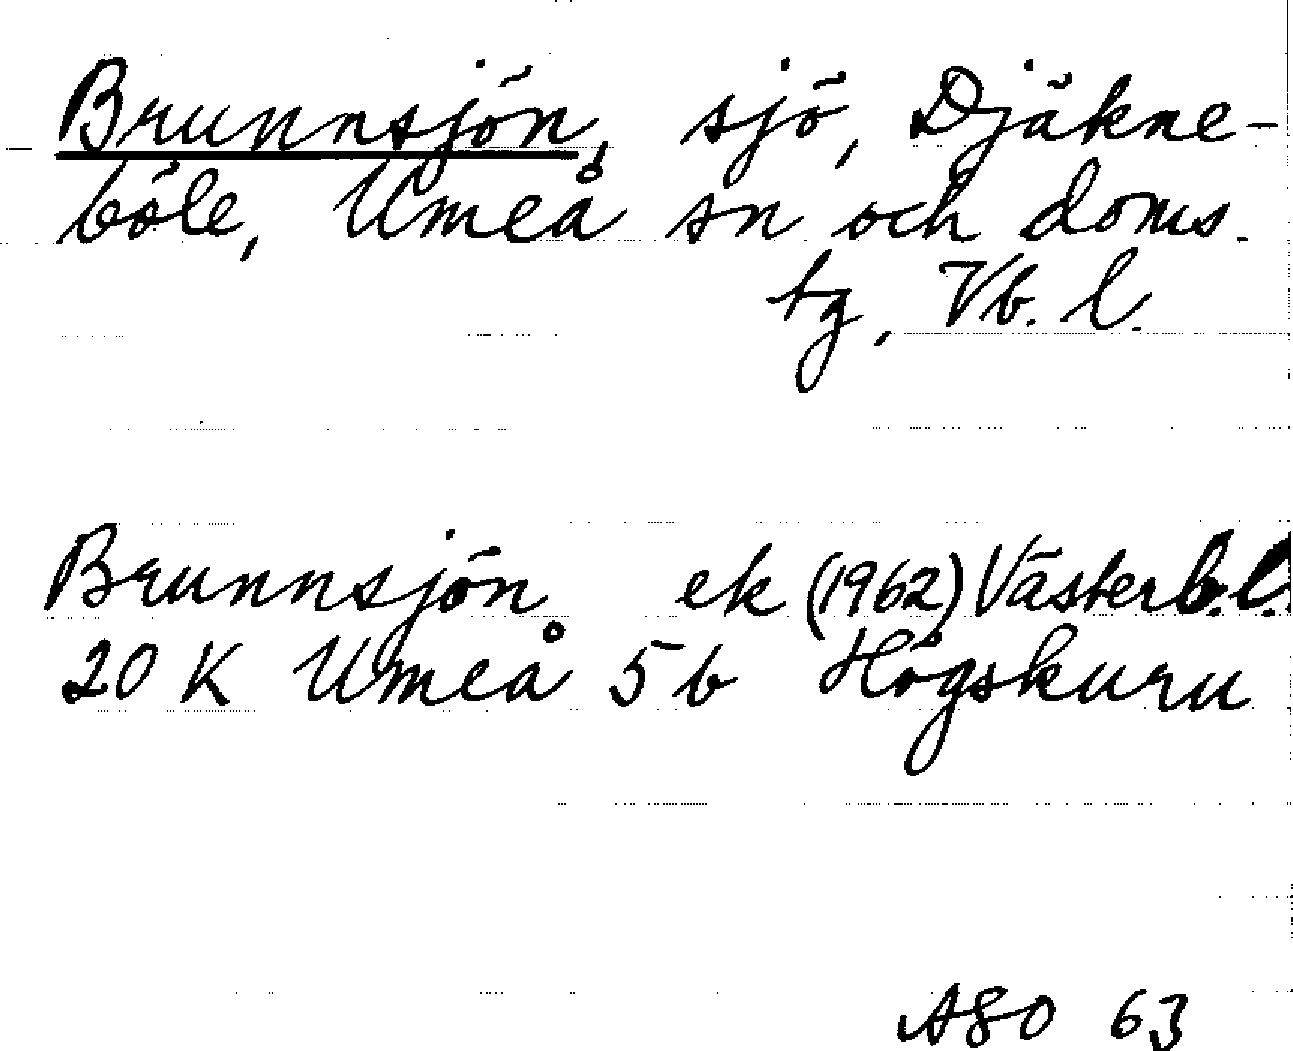 Brunnsjön, sjö, Djäkne-
böle, Umeå sn och doms.
tg, Vb. l.
Brunnsjön ek (1962) Västerb.l.
20 K Umeå 5 b Högskuru
ASO 63